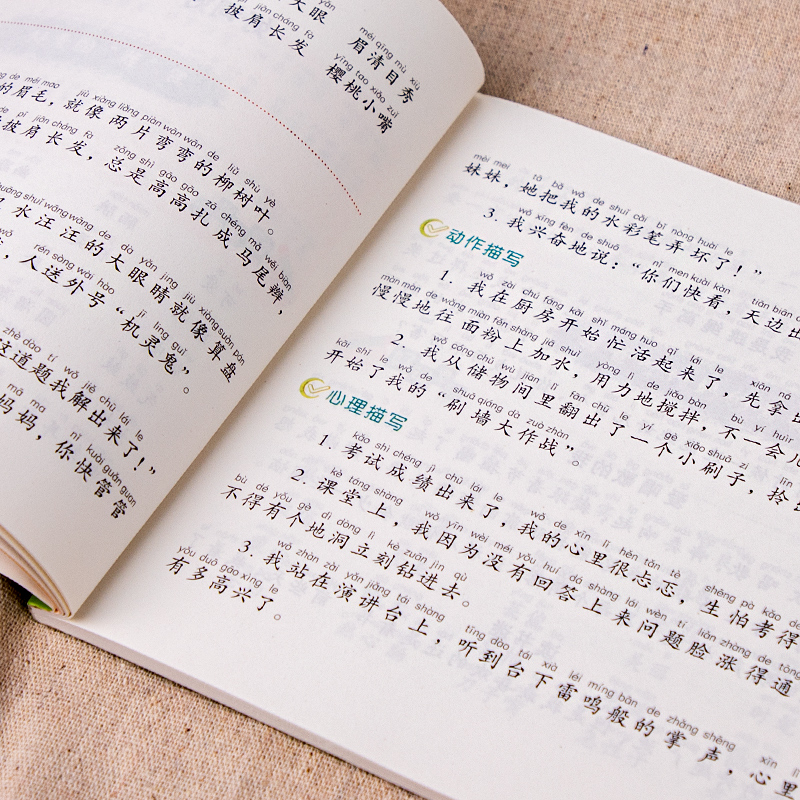 大眼
披肩长发 眉清目秀
樱桃小嘴
的眉毛，就像两片弯弯的柳树叶。
披肩长发，总是高高扎成马尾辫，
水汪汪的大眼睛就像算盘
，人送外号“机灵鬼”。
这道题我解出来了！”
妈妈，你快管管
妹妹，她把我的水彩笔弄坏了！”
3. 我兴奋地说：“你们快看，天边出
动作描写
1. 我在厨房开始忙活起来了，先拿出
慢慢地往面粉上加水，用力地搅拌，不一会儿
2. 我从储物间里翻出了一个小刷子，拎
开始了我的“刷墙大作战”。
心理描写
1. 考试成绩出来了，我的心里很忐忑，生怕考得
2. 课堂上，我因为没有回答上来问题脸涨得通
不得有个地洞立刻钻进去。
3. 我站在演讲台上，听到台下雷鸣般的掌声，心里
有多高兴了。